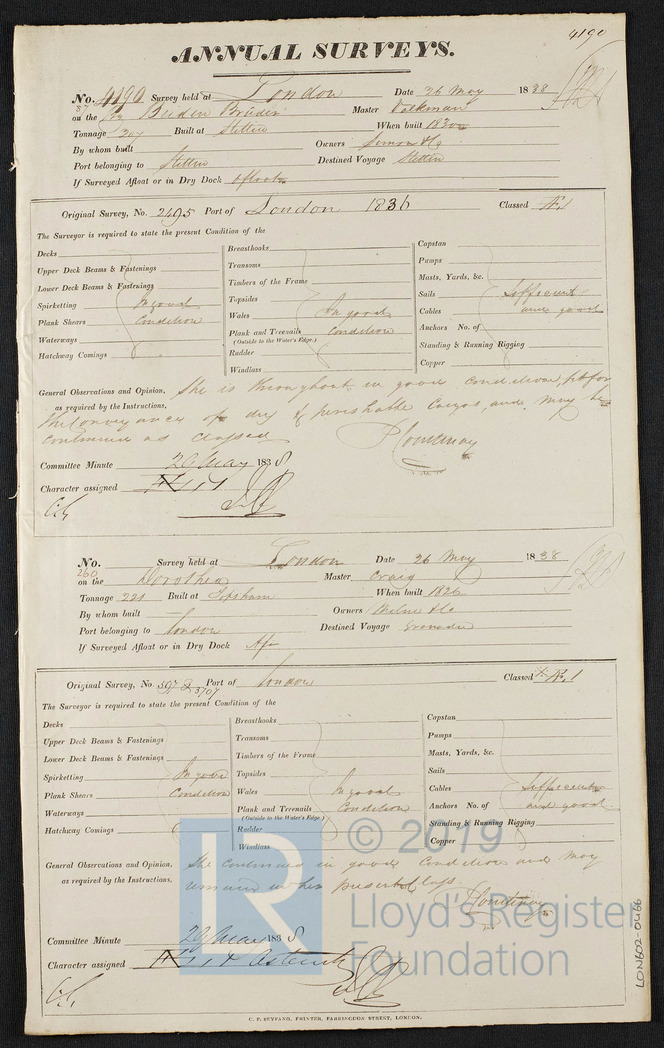 4190
ANNUAL SURVEYS.
No. 4190 Survey held at London Date 26 May 1838
on the Beiden Brüder Master Volkman
Tonnage 307 Built at Stettin When built 1830
By whom built Owners Simon & Co
Port belonging to Stettin Destined Voyage Stettin
If Surveyed Afloat or in Dry Dock afloat
Original Survey, No. 2495 Port of London 1836 Classed Æ.1
The Surveyor is required to state the present Condition of the
Decks
Upper Deck Beams & Fastenings
Lower Deck Beams & Fastenings
Spirketting In good
Plank Shears Condition
Waterways
Hatchway Comings
Breasthooks
Transoms
Timbers of the Frame
Topsides
Wales In good
Plank and Treenails Condition
(Outside to the Water's Edge.)
Rudder
Windlass
Capstan
Pumps
Masts, Yards, &c.
Sails Sufficient
Cables and good
Anchors No. of
Standing & Running Rigging
Copper
General Observations and Opinion, She is throughout in good condition, fit for
as required by the Instructions. the conveyance of dry & perishable cargos, and may be
continued as classed
P Courtenay
Committee Minute 29 May 1838
Character assigned Æ 1
No. Survey held at London Date 26 May 1838
260
on the Dorothea Master Craig
Tonnage 221 Built at Topsham When built 1826
By whom built Owners Milne & Co
Port belonging to London Destined Voyage Grenada
If Surveyed Afloat or in Dry Dock Aft
Original Survey, No. 597 & 3707 Port of London Classed Æ.1
The Surveyor is required to state the present Condition of the
Decks
Upper Deck Beams & Fastenings
Lower Deck Beams & Fastenings
Spirketting In good
Plank Shears Condition
Waterways
Hatchway Comings
Breasthooks
Transoms
Timbers of the Frame
Topsides
Wales In good
Plank and Treenails Condition
(Outside to the Water's Edge.)
Rudder
Windlass
Capstan
Pumps
Masts, Yards, &c.
Sails
Cables Sufficient
Anchors No. of and good
Standing & Running Rigging
Copper
General Observations and Opinion, She continues in good condition and may
as required by the Instructions. remain in her present class
P Courtenay
Committee Minute 29 May 1838
Character assigned Æ 1
C. F. SEYFANG, PRINTER, FARRINGDON STREET, LONDON.
LON602-0466
LR
© 2019
Lloyd's Register
Foundation